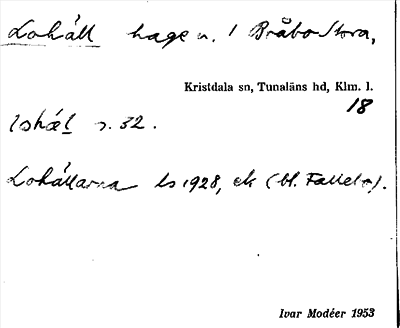 Lohäll hage n. 1 Bråbo Stora,
Kristdala sn, Tunaläns hd, Klm. l.
18
s. 32.
Lohällarna ls 1928, ek (bl.
Ivar Modéer 1953